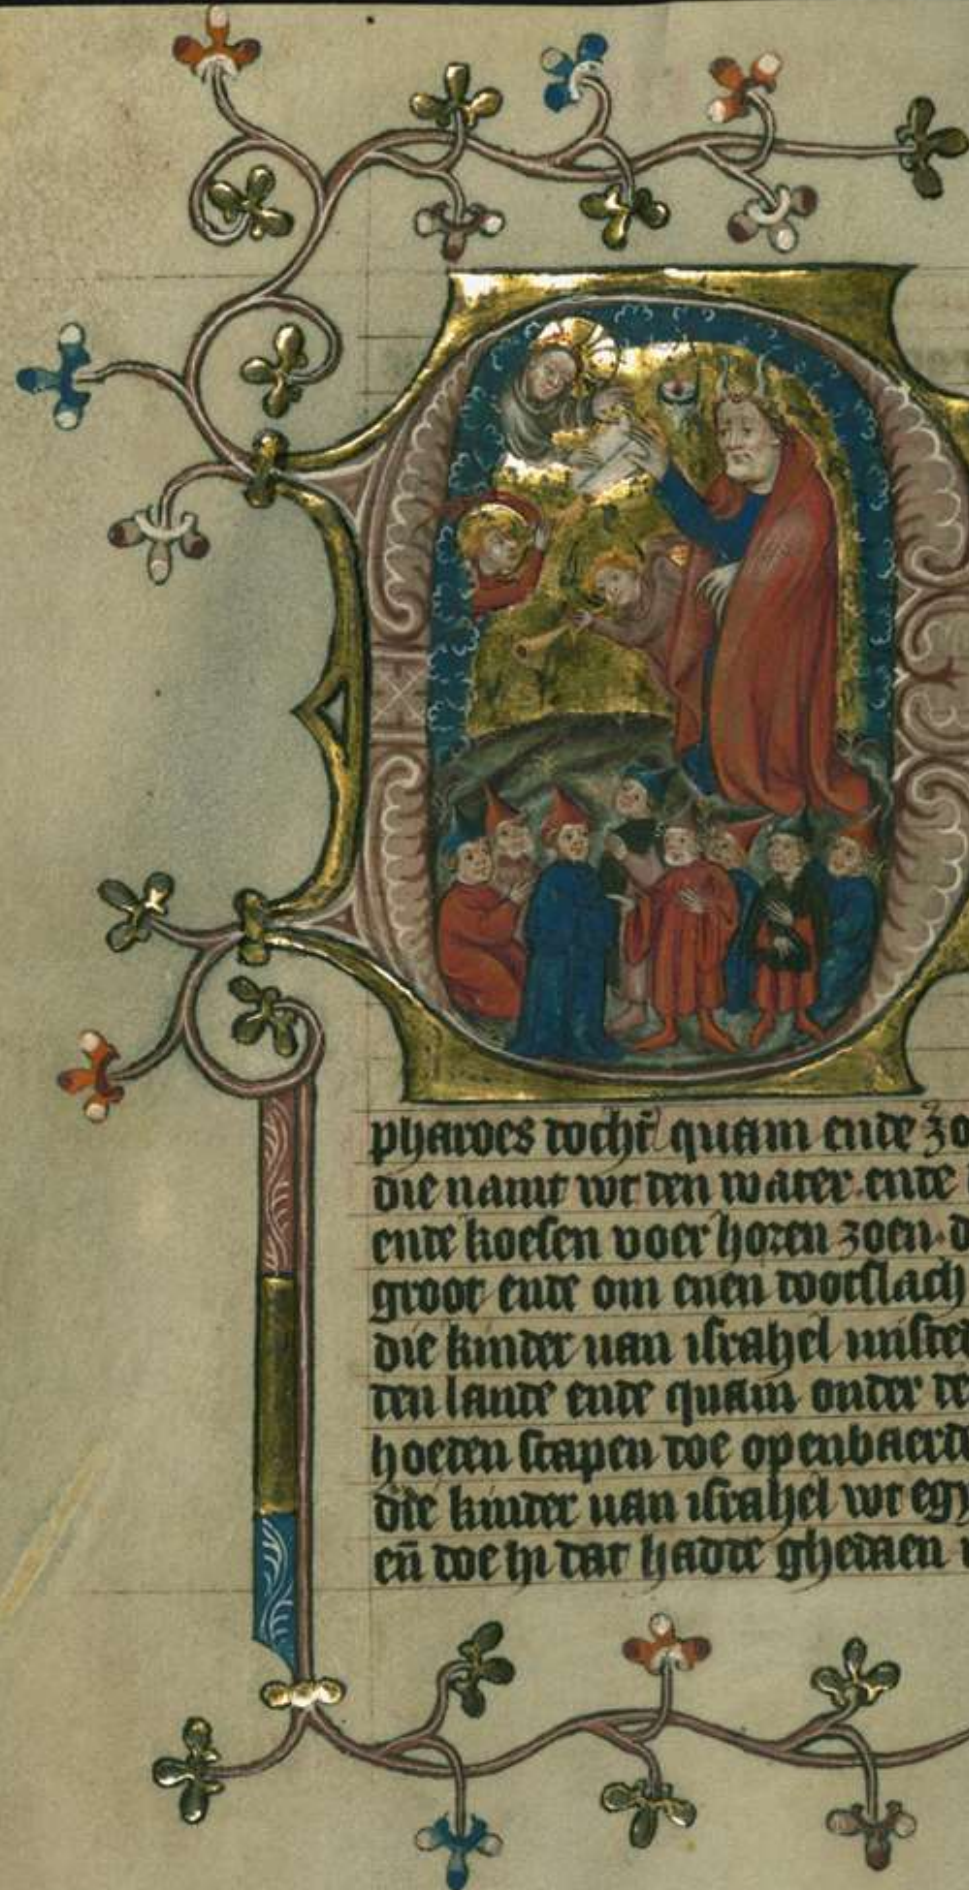 pharoes docht̄ quam ende zo
die namt wt den water. ende
ende koesen voer horen zoen. d
groot ende om enen dootslach
die kinder uan israhel
den lande ende quam onder de
hoeden scapen doe openbaerde
die kinder uan israhel wt egy
en̄ doe hi dat hadde ghedaen